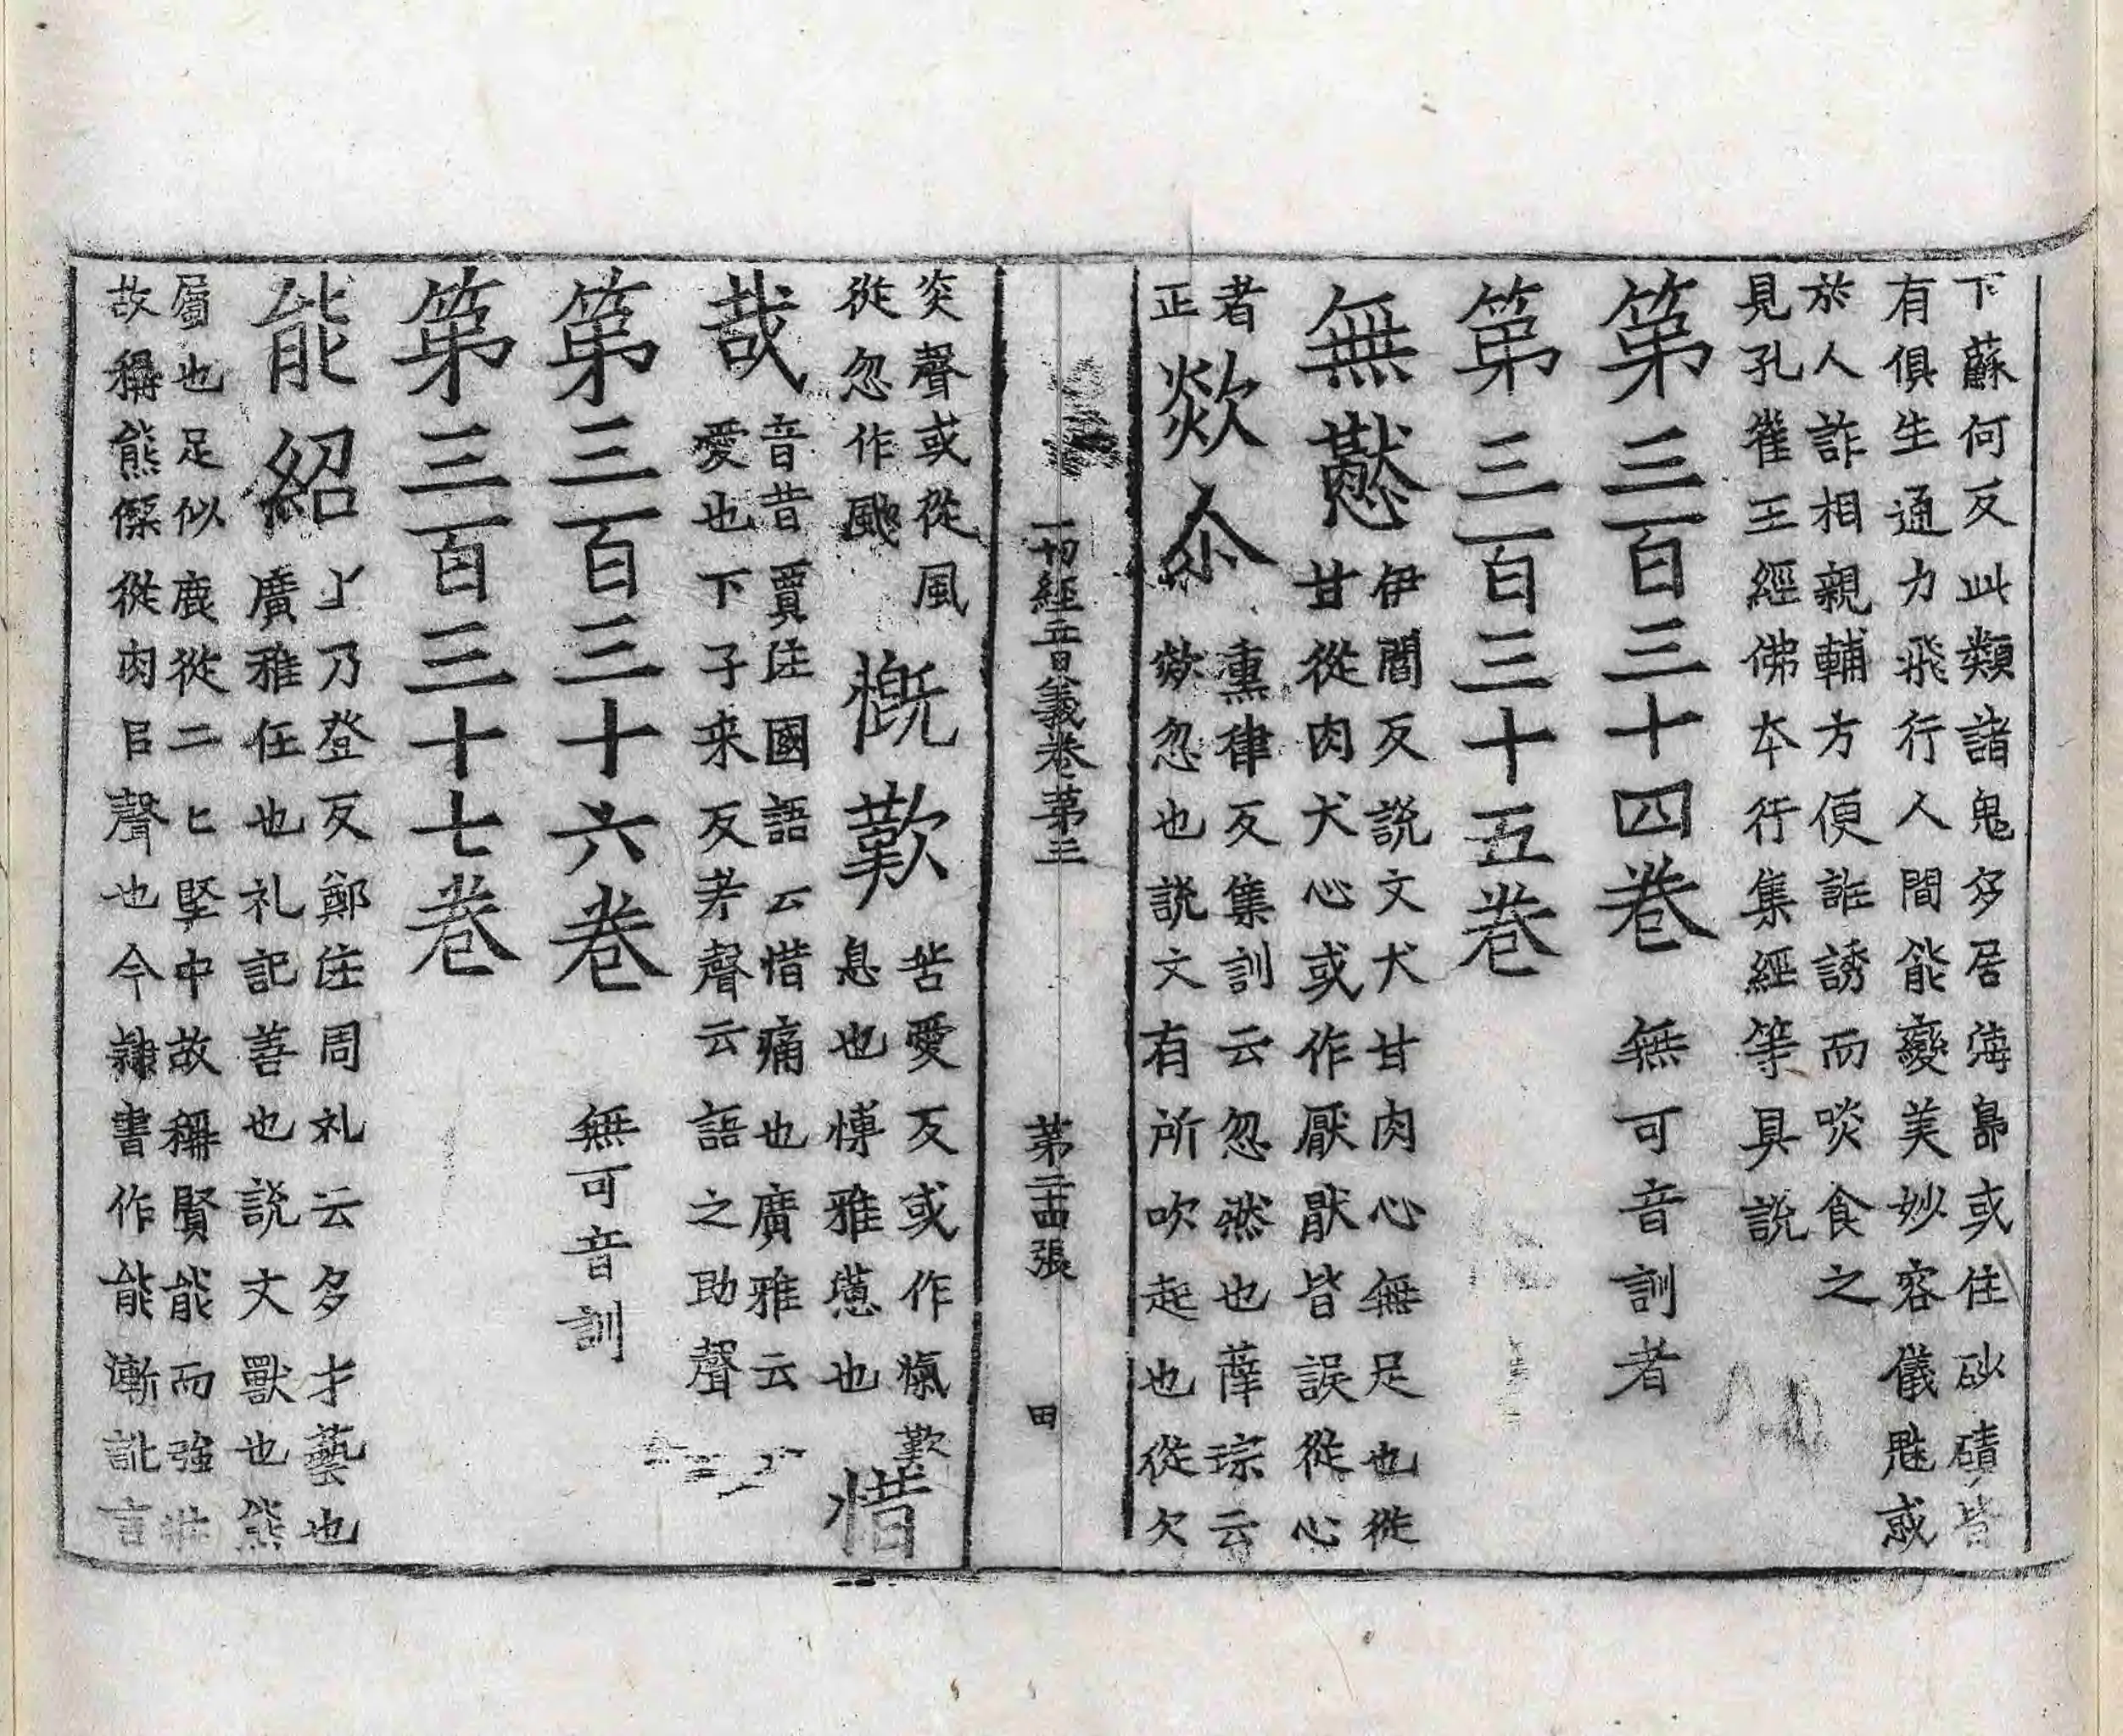 下蘇何反此類諸鬼多居海島或住砂磧皆
有俱生通力飛行人間能變美妙容儀魅惑
於人詐相親輔方便誑誘而啖食之
見孔雀王經佛本行集經等具說
第三百三十四卷 無可音訓者
第三百三十五卷
無猒 伊閻反說文犬甘肉心無足也從
甘從肉犬心或作厭猒皆誤從心
者
正 欻尒 熏律反集訓云忽然也薛琮云
欻忽也說文有所吹起也從欠
炎聲或從風
從忽作颮 慨歎 苦愛反或作愾歎
息也博雅懣也 惜
哉 音昔賈注國語云惜痛也廣雅云
愛也下子来反𢦏聲云語之助聲
第三百三十六卷 無可音訓
第三百三十七卷
能紹 上乃登反鄭注周礼云多才藝也
廣雅任也礼記善也說文獸也熊
屬也足似鹿從二匕堅中故稱賢能而強壯
故稱熊傑從肉㠯聲也今隸書作能漸訛言
一切經音義卷第三 第二十四張 田